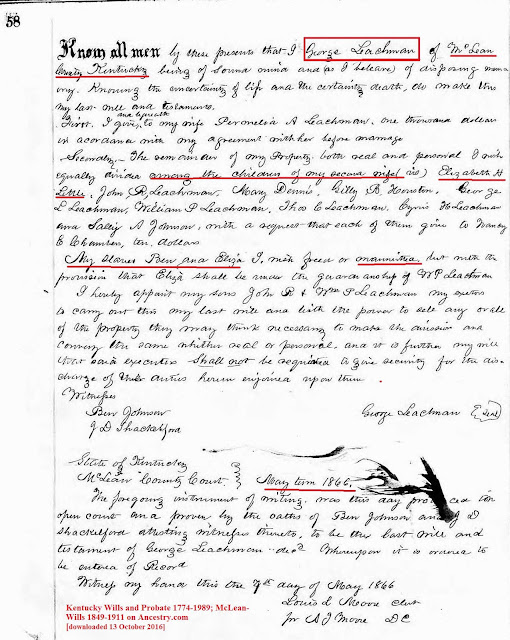 58
Know all men by these presents that I George Leachman of McLean
County Kentucky being of sound mind and (as I beleave) of disposing mem
ory. Knowing the uncertainty of life and the certainty death, do make this
my last will and testaments.
First. I give and bequeath to my wife Peronelia A Leachman, one thousand dollars
in acordance with my agreement with her before marriage
Secondly. The remainder of my Property both real and personal I wish
equally divided among the children of my second wife (viz) Elizabeth H
Little, John R Leachman, Mary Dennis, Gilly R Houston, George
L Leachman, William P Leachman, Thos C Leachman, Cyrus H Leachman
and Sally A Johnson, with a request that each of them give to Nancy
E Chambers, ten dollars
My slaves Ben and Eliza I, wish freed or manumitted, but with the
provision that Eliza shall be under the guardianship of Wm P Leachman
I hereby appoint my sons John R & Wm P Leachman my exetors
to carry out this my last will and with the power to sell any or all
of the property they may think necessary to make the division and
convey the same whither real or personal, and it is further my will
that said executors shall not be required to give security for the dis-
charge of their duties herein enjoined upon them.
Witnesses
Ben Johnson
J D Shackelford
George Leachman Seal
State of Kentucky
McLean County Court. May term 1866.
The foregoing instrument of writing, was this day produced in
open court and proven by the oaths of Ben Johnson and J D
Shackelford attesting witnesses thereto, to be the last will and
testament of George Leachman decd Whereupon it is ordered to
be entered of Record
Witness my hand this the 7th day of May 1866
Louis L Moore clerk
for A J Moore DC
Kentucky Wills and Probate 1774-1989; McLean-
Wills 1849-1911 on Ancestry.com
[downloaded 13 October 2016]